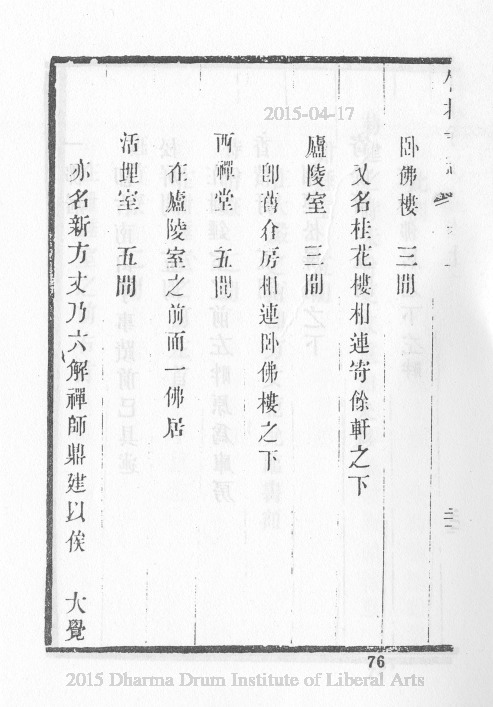 2015-04-17
卧佛樓 三間
又名桂花樓相連寄餘軒之下
廬陵室 三間
卽舊倉房相連卧佛樓之下
西禪堂 五間
在廬陵室之前面一佛居
活埋室 五間
亦名新方丈乃六解禪師鼎建以俟 大覺
76
2015 Dharma Drum Institute of Liberal Arts